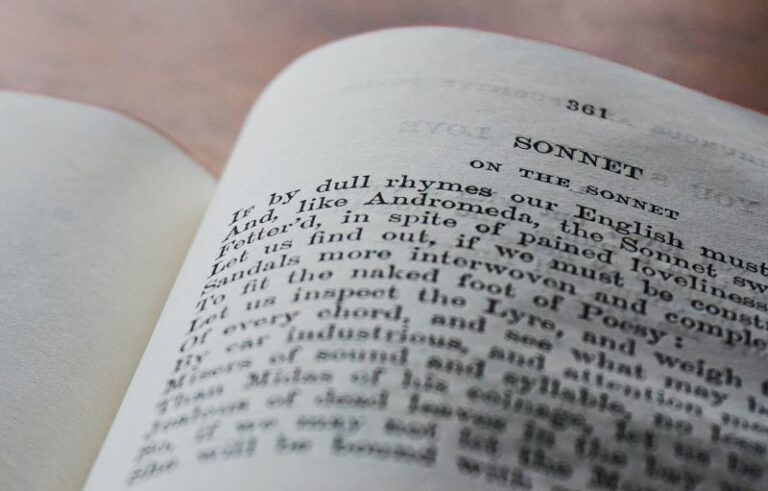 361
SONNET
ON THE SONNET
If by dull rhymes our English must
And, like Andromeda, the Sonnet sw
Fetter'd, in spite of pained loveliness
Let us find out, if we must be constr
Sandals more interwoven and comple
To fit the naked foot of Poesy:
Let us inspect the Lyre, and weigh
Of every chord, and see what may b
By ear industrious, and attention me
Misers of sound and syllable, no less
Than Midas of his coinage, let us be
Jealous of dead leaves in the bay
So, if we may not let the M
She will be bound with